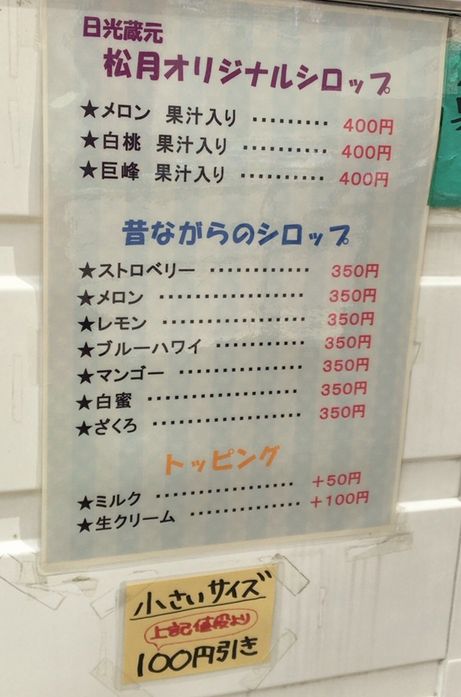 日光蔵元
松月オリジナルシロップ
★メロン 果汁入り ‥‥‥‥‥ 400円
★白桃 果汁入り ‥‥‥‥‥ 400円
★巨峰 果汁入り ‥‥‥‥‥ 400円
昔ながらのシロップ
★ストロベリー ‥‥‥‥‥‥ 350円
★メロン ‥‥‥‥‥‥‥‥ 350円
★レモン ‥‥‥‥‥‥‥‥ 350円
★ブルーハワイ ‥‥‥‥‥ 350円
★マンゴー ‥‥‥‥‥‥‥ 350円
★白蜜 ‥‥‥‥‥‥‥‥‥ 350円
★ざくろ ‥‥‥‥‥‥‥‥ 350円
トッピング
★ミルク ‥‥‥‥‥‥‥‥ +50円
★生クリーム ‥‥‥‥‥‥ +100円
小さいサイズ
上記値段より
100円引き